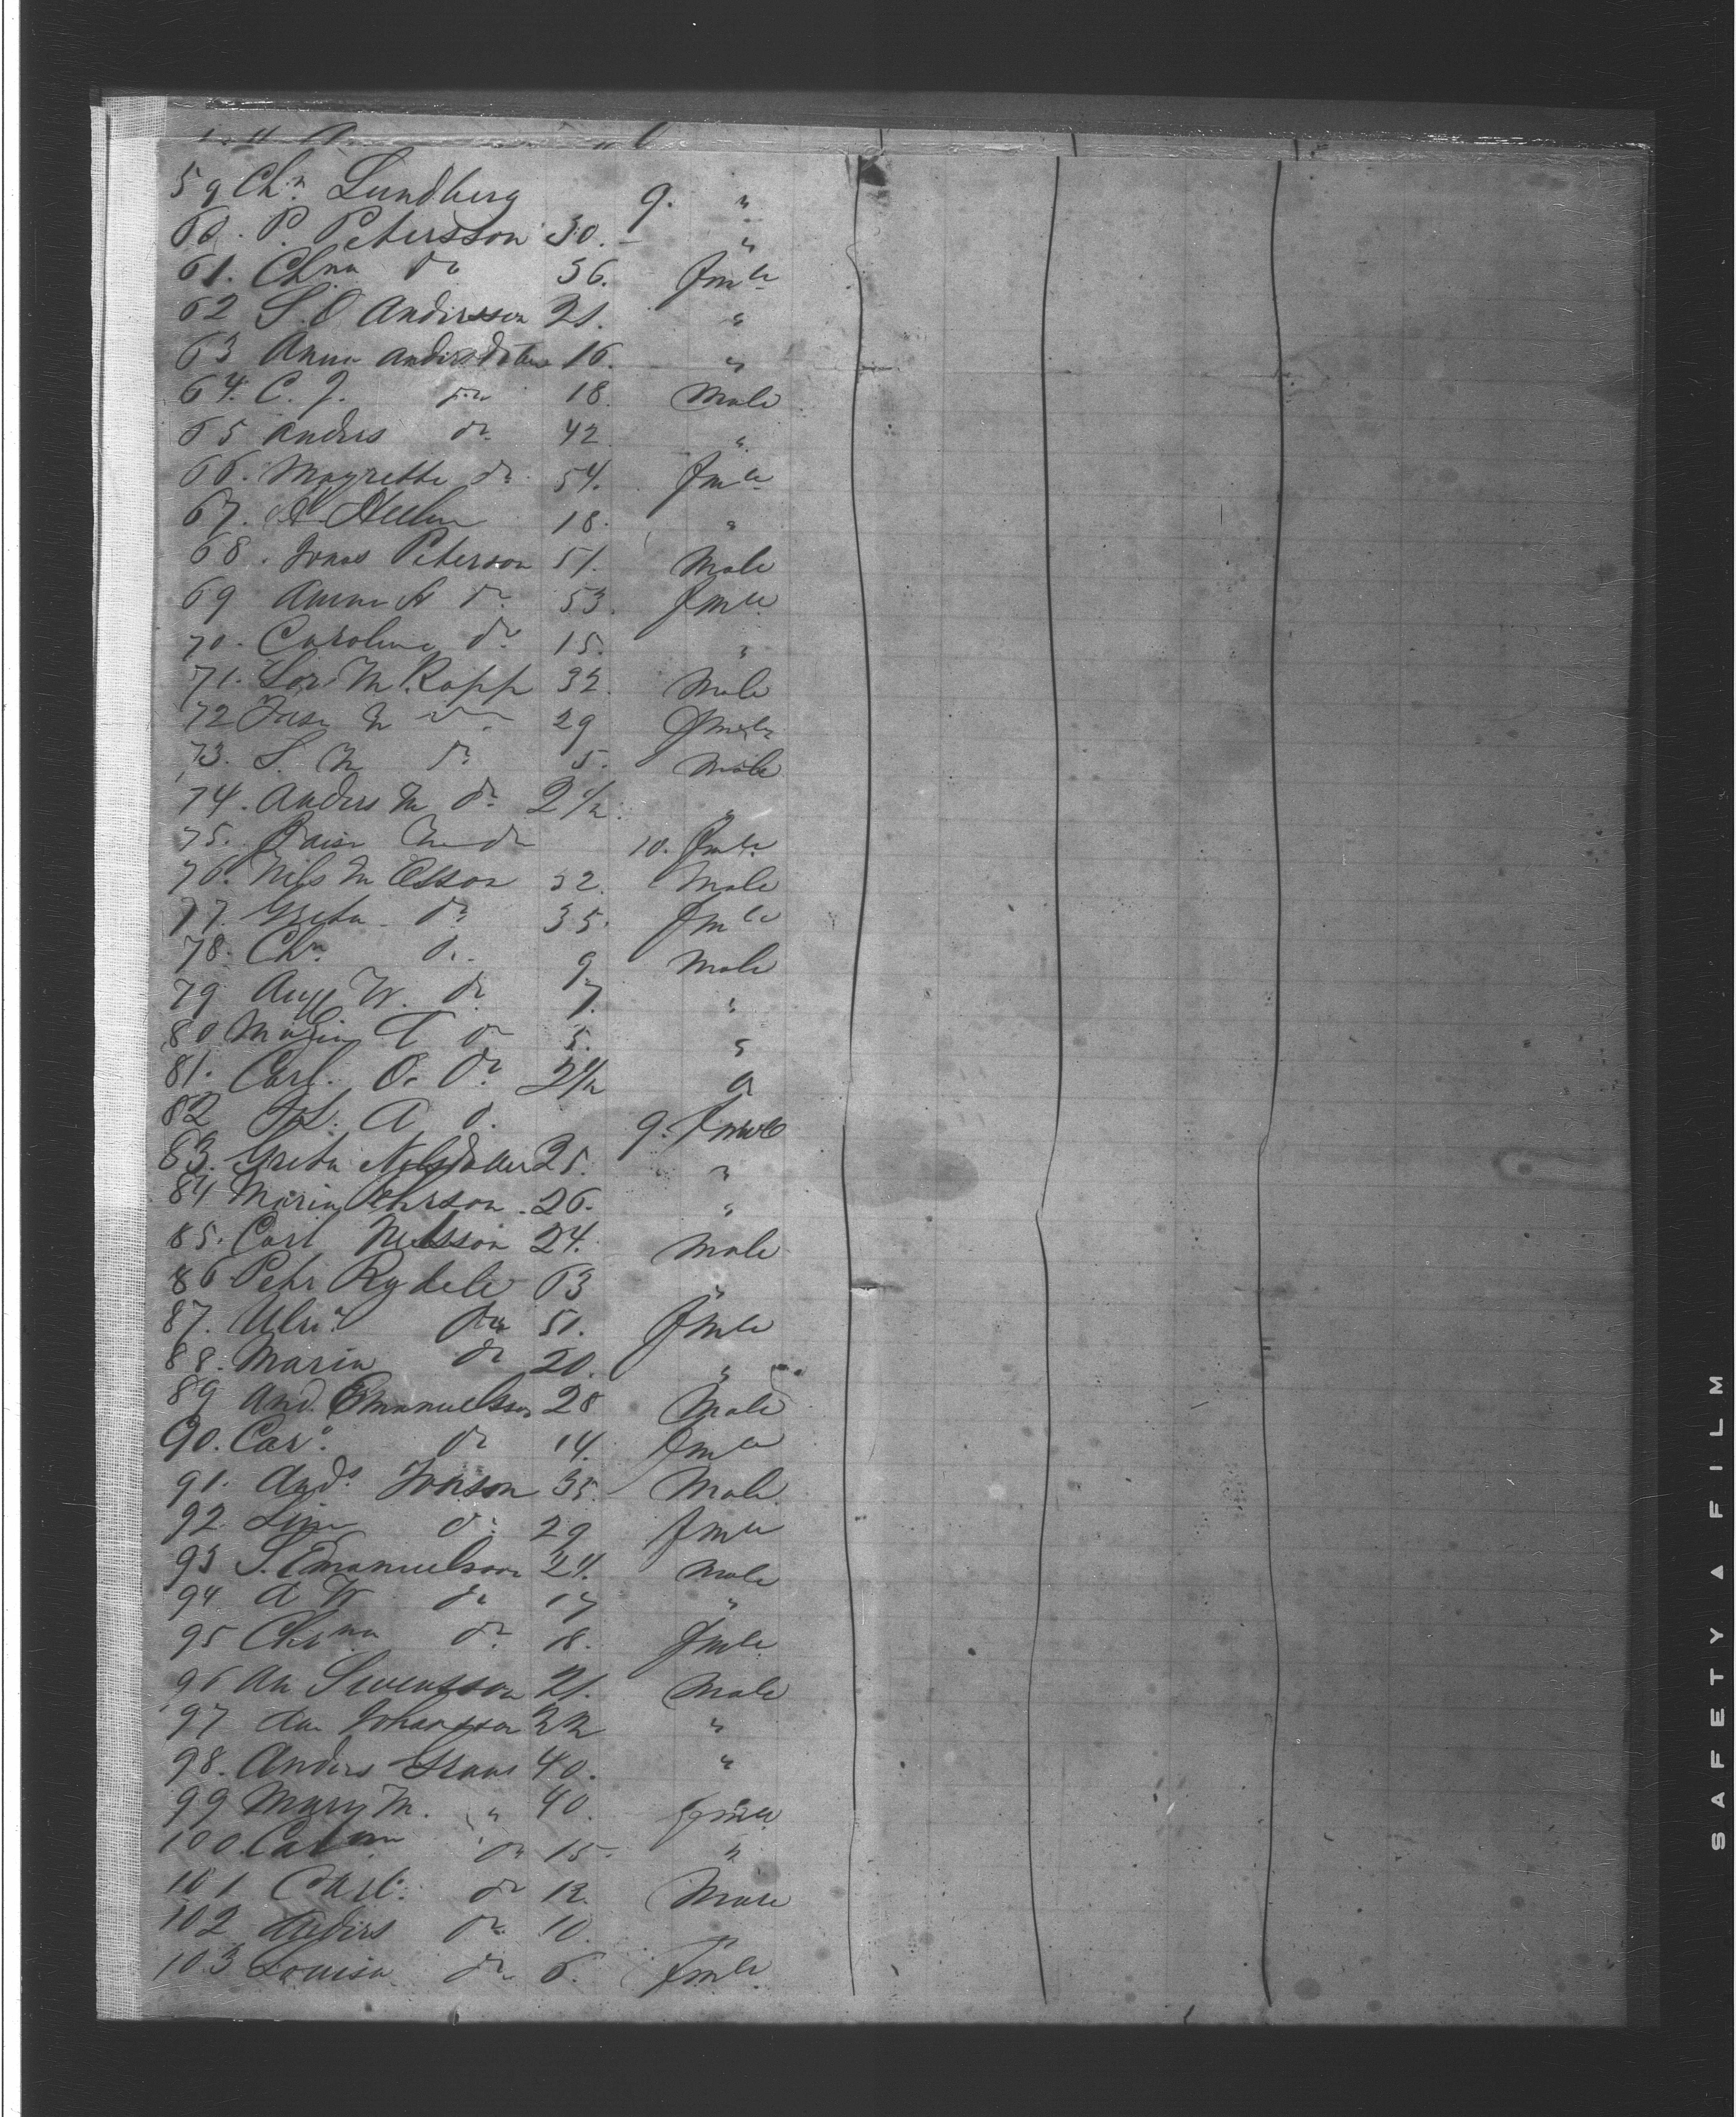 59 Chn. Lundberg 9. "
60. P. Petersson 30. "
61. Chna do 36. fmle
62 S. O Andersson 21. "
63 Anna Andersdoter 16. "
64. C. J. do 18. Male
65 Anders do 42 "
66. Magrette do 54. fmle
67. 18. "
68. Jonas Peterson 51. Male
69 Anna A do 53. fmle
70. Carolina do 15. "
71. M. Rapp 32. Male
72 M do 29 fmle
73. S. M do 5. Male
74. Anders M do 2 1/2. "
75. do 10. fmle
76. Nils M Olsson 32. Male
77. Greta do 35. fmle
78. Chn. do. 9 Male
79 Aug W. do 7. "
80 do 5. "
81. Carl. O. do. 2 1/2 "
82 A d. 9. fmle
83. Greta Nilsdotter 25. "
84 Maria Pehrson. 26. "
85. Carl Nelsson 24. Male
86 Pehr Rydele 63 "
87. Ulri. do 51. fmle
88. Maria do 20. "
89 And. Emanuelsson 28 Male
90. Car. do 14. fmle
91. Ands. Jonson 35. Male
92. Lina do. 29 fmle
93 S. Emanuelson 24. Male
94 A W do 17 "
95 Chrna do. 18. fmle
96 An Swensson 21. Male
97 Johansson 22 "
98. Anders 40. "
99 Mary M. " 40. fmle
100. do 15. "
101 Carl. do 12. Male
102 Anders do. 10. "
103 Louisa do 6. fmle
SAFETY ▲ FILM